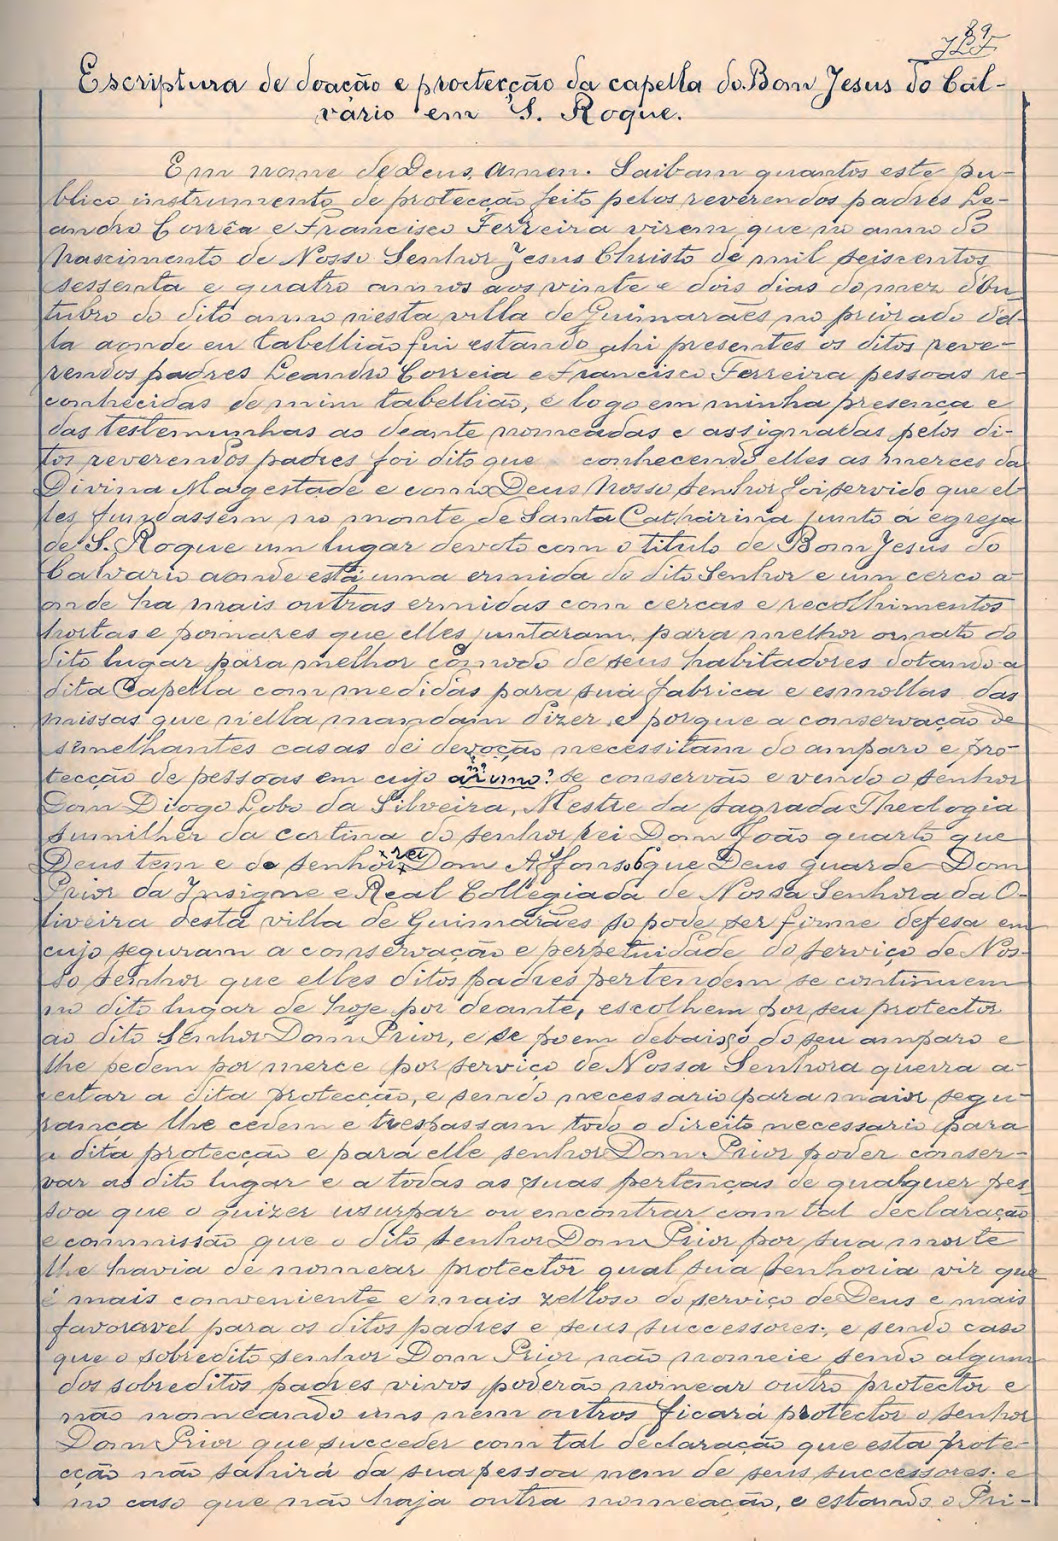 89
Escriptura de doação e proctecção da capella do Bom Jesus do Cal-
vário em S. Roque.
Em nome de Deus, Amen. Saibam quantos este pu-
blico instrumento de protecção feito pelos reverendos padres Le-
andro Corrêa e Francisco Ferreira virem que no anno do
Nascimento de Nosso Senhor Jesus Christo de mil seiscentos
sessenta e quatro annos aos vinte e dois dias do mez d'ou-
tubro do dito anno n'esta villa de Guimarães no priorado del-
la aonde eu tabellião fui estando ahi presentes os ditos reve-
rendos padres Leandro Correia e Francisco Ferreira pessoas re-
conhecidas de mim tabellião, e logo em minha presença e
das testemunhas ao deante nomeadas e assignadas pelos di-
tos reverendos padres foi dito que conhecendo elles as merces da
Divina Magestade e como Deus Nosso Senhor foi servido que el-
les fundassem no monte de Santa Catharina junto á egreja
de S. Roque um lugar devoto com o titulo de Bom Jesus do
Calvario aonde está uma ermida do dito Senhor e um cerco a-
onde ha mais outras ermidas com cercas e recolhimentos
hortas e pomares que elles juntaram, para melhor ornato do
dito lugar para melhor cómodo de seus habitadores dotando a
dita Capella com medidas para sua fabrica e esmollas das
missas que n'ella mandam dizer, e porque a conservação de
semelhantes casas de devoção necessitam do amparo e pro-
tecção de pessoas em cujo se conservão e vendo o senhor
Dom Diogo Lobo da Silveira, Mestre da Sagrada Theologia
sumilher da cortina do senhor rei Dom João quarto que
Deus tem e do senhor rei Dom Affonso 6º que Deus guarde Dom
Prior da Insigne e Real Collegiada de Nossa Senhora da O-
liveira desta villa de Guimarães so pode ser firme defesa em
cujo seguram a conservação e perpetuidade do serviço de Nos-
so Senhor que elles ditos padres pertendem se continuem
no dito lugar de hoje por deante, escolhem por seu protector
ao dito Senhor Dom Prior, e se poem debaixo do seu amparo e
lhe pedem por merce por serviço de Nossa Senhora queira a-
ceitar a dita protecção, e sendo necessario para maior segu-
rança lhe cedem e trespassam todo o direito necessario para
a dita protecção e para elle senhor Dom Prior poder conser-
var ao dito lugar e a todas as suas pertenças de qualquer pes-
soa que o quizer usurpar ou encontrar com tal declaração
e commissão que o dito senhor Dom Prior por sua morte
lhe havia de nomear protector qual sua senhoria vir que
é mais conveniente e mais zelloso do serviço de Deus e mais
favoravel para os ditos padres e seus successores; e sendo caso
que o sobredito senhor Dom Prior não nomeie sendo algum
dos sobreditos padres vivos poderão nomear outro protector e
não nomeando uns nem outros ficará protector o senhor
Dom Prior que succeder com tal declaração que esta prote-
cção não sahirá da sua pessoa nem de seus successores; e
no caso que não haja outra nomeação, e estando o Pri-